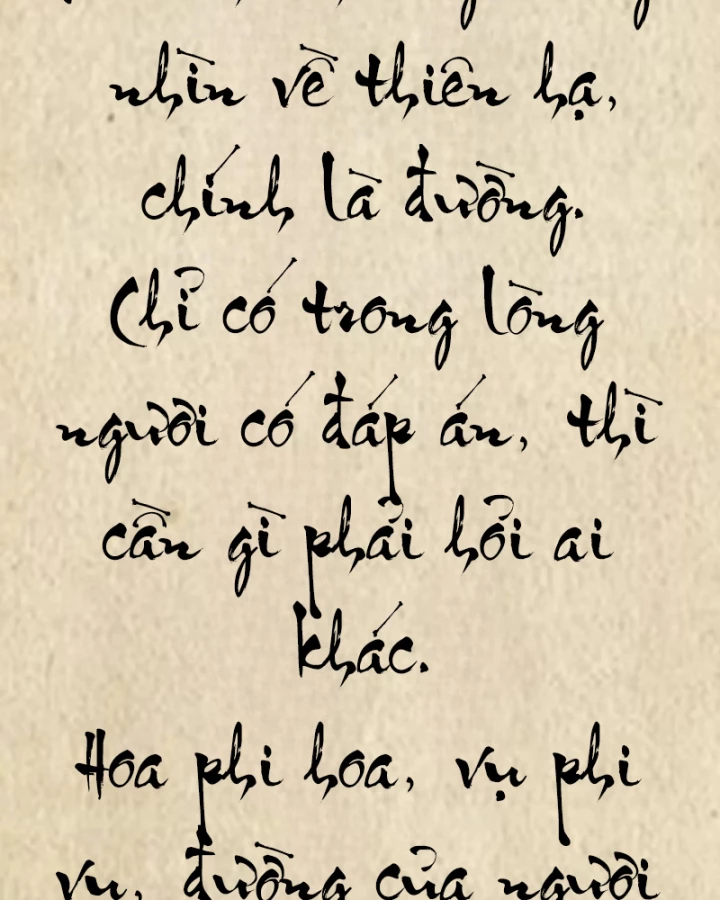 nhìn về thiên hạ,
chính là đường.
Chỉ có trong lòng
người có đáp án, thì
cần gì phải hỏi ai
khác.
Hoa phi hoa, vụ phi
vụ, đường của người